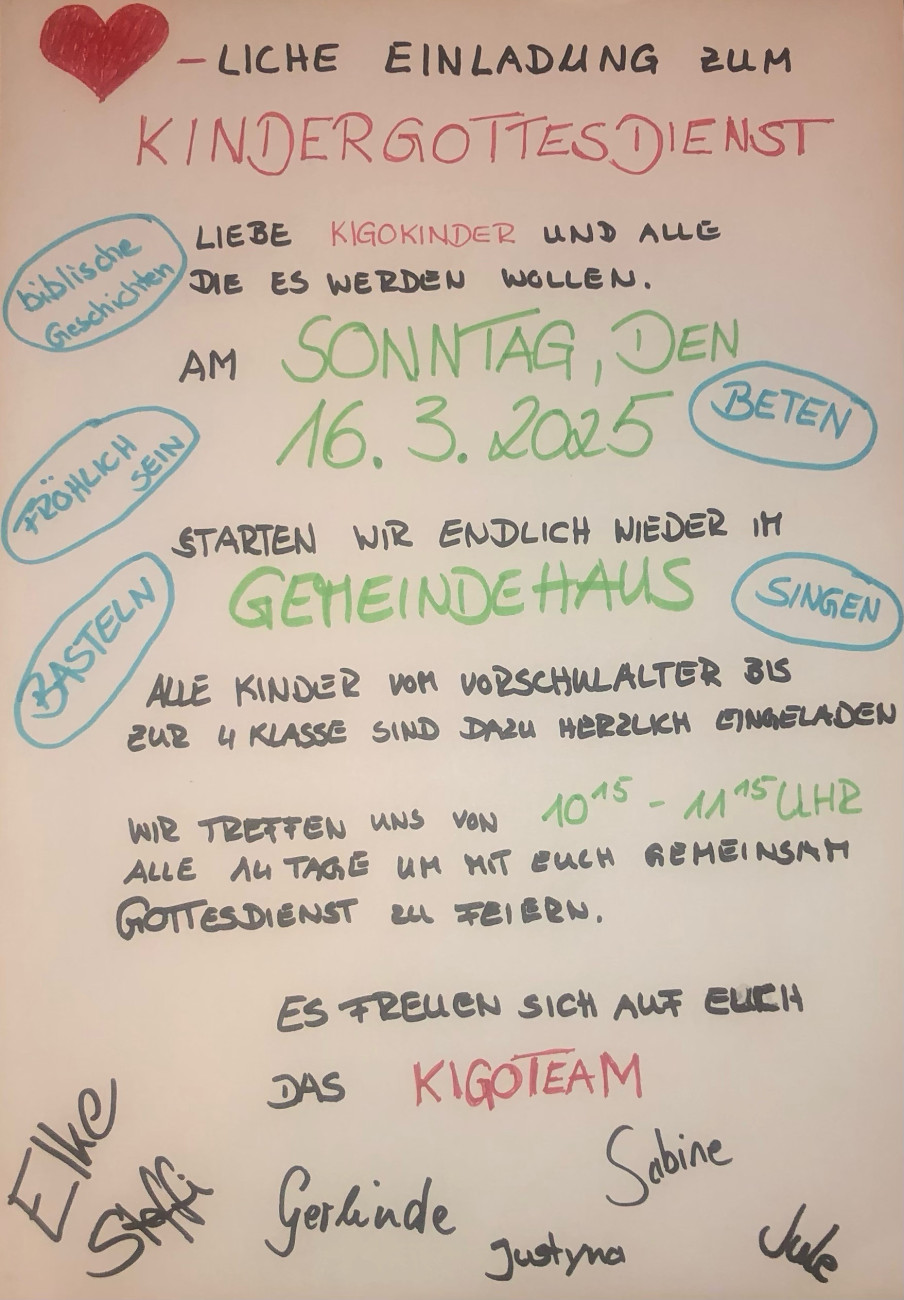 -LICHE EINLADUNG ZUM
KINDERGOTTESDIENST
LIEBE KIGOKINDER UND ALLE
DIE ES WERDEN WOLLEN.
biblische
Geschichten
AM SONNTAG, DEN
16.3.2025
BETEN
FRÖHLICH
SEIN
STARTEN WIR ENDLICH WIEDER IM
GEMEINDEHAUS
SINGEN
BASTELN
ALLE KINDER VOM VORSCHULALTER BIS
ZUR 4 KLASSE SIND DAZU HERZLICH EINGELADEN
WIR TREFFEN UNS VON 10 15 - 11 15 UHR
ALLE 14 TAGE UM MIT EUCH GEMEINSAM
GOTTESDIENST ZU FEIERN.
ES FREUEN SICH AUF EUCH
DAS KIGOTEAM
Elke
Steffi
Gerlinde
Sabine
Justyna
Jule